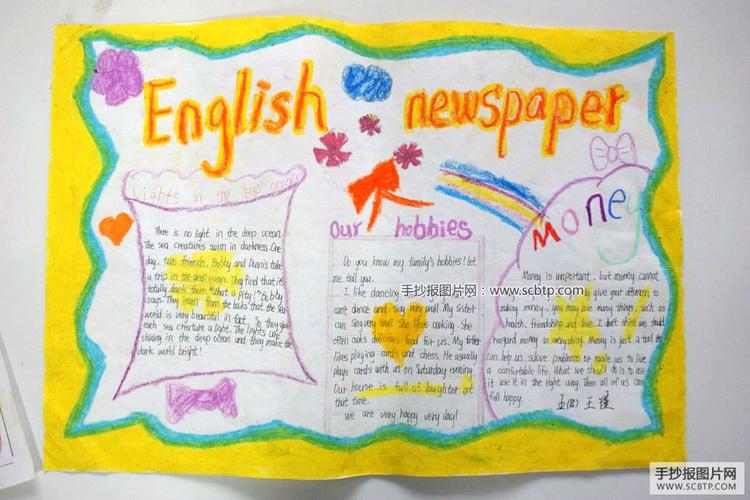 English newspaper
Lights in the deep ocean
There is no light in the deep ocean.
The sea creatures swim in darkness. One
day, two friends, Bobby and Dennis take
a trip in the deep ocean. They find that it's
totally dark there. "What a pity!" Bobby
says. They learn from the books that the sea
world is very beautiful in fact. So they give
each sea creature a light. The lights are
shining in the deep ocean and they make the
dark world bright!
Our hobbies
Do you know my family's hobbies? let
me tell you.
I like dancing
can't dance and sing very well. My sister
can sing very well. She likes cooking. She
often cooks delicious food for us. My father
likes playing cards and chess. He usually
plays cards with us on Saturday evening.
Our house is full of laughter at
that time.
We are very happy very day!
Money
Money is important, but money cannot
give your attention to
making money, you may lose many things, such as
health, friendship and love. I don't think we should
regard money as everything. Money is just a tool
can help us solove problems or make us to live
a comfortable life. What we should do is to use
it use it in the right way. Then all of us can
full happy.
五(2) 王瑾
手抄报图片网:www.scbtp.com
手抄报图片网
WWW.SCBTP.COM